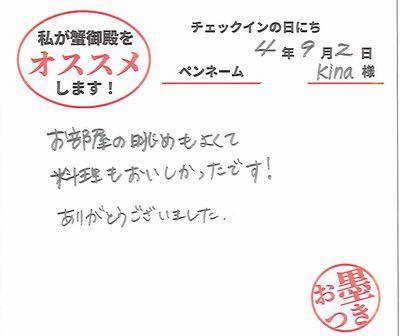 私が蟹御殿を
オススメ
します！
チェックインの日にち
4年9月2日
ペンネーム Kina 様
お部屋の眺めもよくて
料理もおいしかったです！
ありがとうございました.
お墨つき